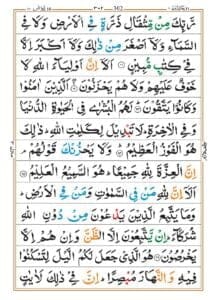 رَّبِّكَ مِنْ مِّثْقَالِ ذَرَّةٍ فِي الْاَرْضِ وَلَا فِي
السَّمَآءِ وَلَآ اَصْغَرَ مِنْ ذٰلِكَ وَلَآ اَكْبَرَ اِلَّا
فِيْ كِتٰبٍ مُّبِيْنٍ اَلَآ اِنَّ اَوْلِيَآءَ اللّٰهِ لَا خَوْفٌ
عَلَيْهِمْ وَلَا هُمْ يَحْزَنُوْنَ الَّذِيْنَ اٰمَنُوْا
وَكَانُوْا يَتَّقُوْنَ لَهُمُ الْبُشْرٰى فِي الْحَيٰوةِ الدُّنْيَا
وَفِي الْاٰخِرَةِ لَا تَبْدِيْلَ لِكَلِمٰتِ اللّٰهِ ذٰلِكَ
هُوَ الْفَوْزُ الْعَظِيْمُ وَلَا يَحْزُنْكَ قَوْلُهُمْ
اِنَّ الْعِزَّةَ لِلّٰهِ جَمِيْعًا هُوَ السَّمِيْعُ الْعَلِيْمُ
اَلَآ اِنَّ لِلّٰهِ مَنْ فِي السَّمٰوٰتِ وَمَنْ فِي الْاَرْضِ
وَمَا يَتَّبِعُ الَّذِيْنَ يَدْعُوْنَ مِنْ دُوْنِ اللّٰهِ
شُرَكَآءَ اِنْ يَّتَّبِعُوْنَ اِلَّا الظَّنَّ وَاِنْ هُمْ اِلَّا
يَخْرُصُوْنَ هُوَ الَّذِيْ جَعَلَ لَكُمُ الَّيْلَ لِتَسْكُنُوْا
فِيْهِ وَالنَّهَارَ مُبْصِرًا اِنَّ فِيْ ذٰلِكَ لَاٰيٰتٍ